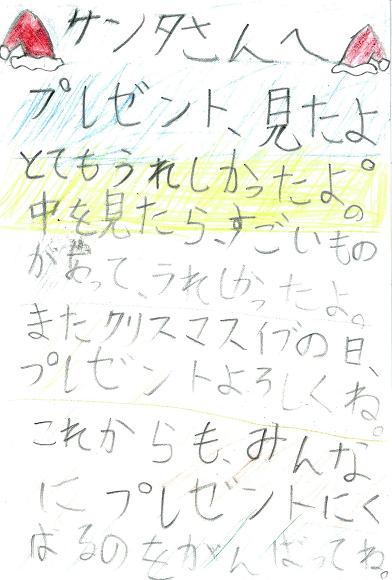 サンタさんへ
プレゼント、見たよ
とてもうれしかったよ。
中を見たら、すごいもの
があって、うれしかったよ。
またクリスマスイブの日、
プレゼントよろしくね。
これからも、みんな
にプレゼントにく
はるのをがんばってね。